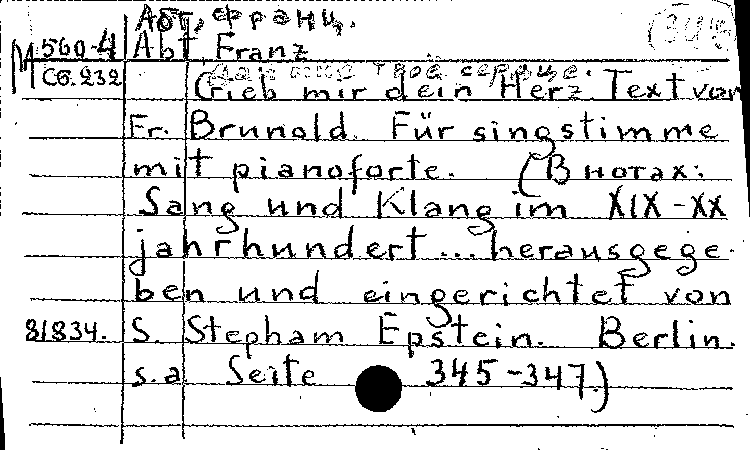 Абт, Франц.
M 560-4 Abt Franz
Сб. 232 Дай мне твое сердце.
Gieb mir dein Herz. Text von
Fr. Brunold. Für singstimme
mit pianoforte. (В нотах:
Sang und Klang im XIX-XX
jahrhundert ... herausgege-
ben und eingerichtet von
81834. S. Stepham Epstein. Berlin.
s.a. Seite 345-347.)